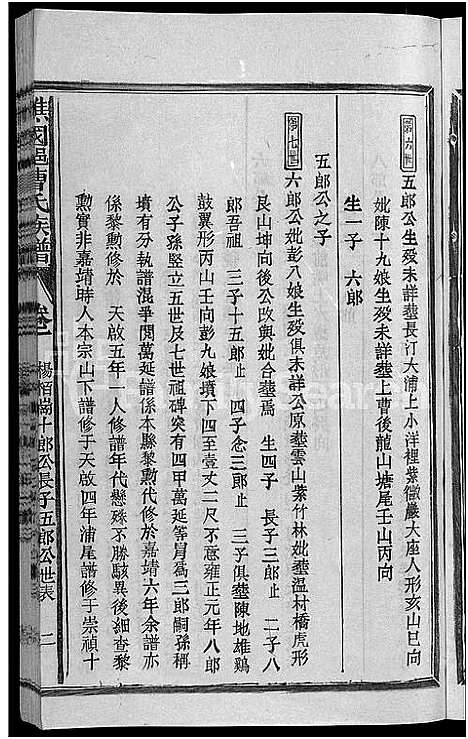 第六世
五郎公生歿未詳葬長汀大浦上小洋裡紫微巖大座人形亥山巳向
妣陳十九娘生歿未詳葬上曹後龍山塘尾壬山丙向
生一子 六郎
五郎公之子
第七世
六郎公妣彭八娘生歿俱未詳公原葬雲山紫竹林妣葬温村橋虎形
艮山坤向後公改與妣合葬焉 生四子 長子三郎止 二子八
郎吾祖 三子十五郎止 四子念三郎止 三子俱葬陳地雄鷄
鼓翼形丙山壬向彭九娘墳下四至壹丈二尺不意雍正元年八郎
公子孫竪立五世及七世祖碑突有四甲萬延等冐爲三郎嗣孫稱
墳有分執譜混爭閱萬延譜係本縣黎勲代修於嘉靖六年余譜亦
係黎勲修於 天啟五年一人修譜年代懸殊不勝駭異後細查黎
勲實非嘉靖時人本宗山下譜修于天啟四年浦尾譜修于崇禎十
譙國邑曹氏族譜 卷一 楊梅崗十郎公長子五郎公世表 二